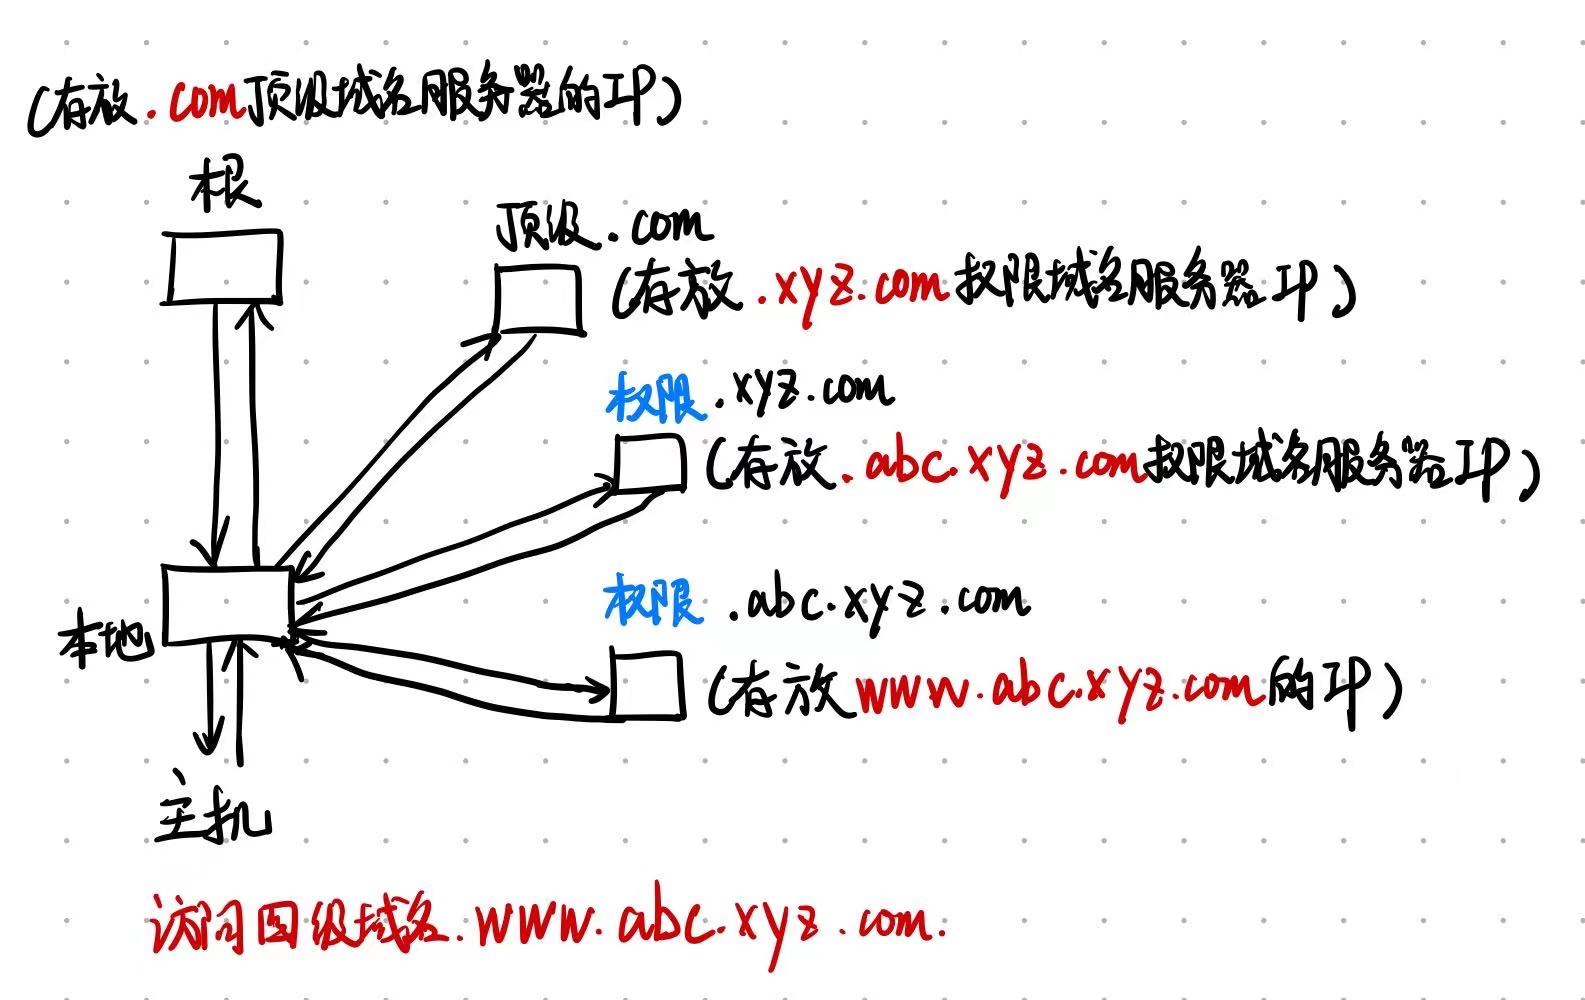 (存放.com顶级域名服务器的IP)
根
顶级.com
(存放.xyz.com权限域名服务器IP)
权限.xyz.com
(存放.abc.xyz.com权限域名服务器IP)
权限.abc.xyz.com
本地
(存放www.abc.xyz.com的IP)
主机
访问四级域名.www.abc.xyz.com.